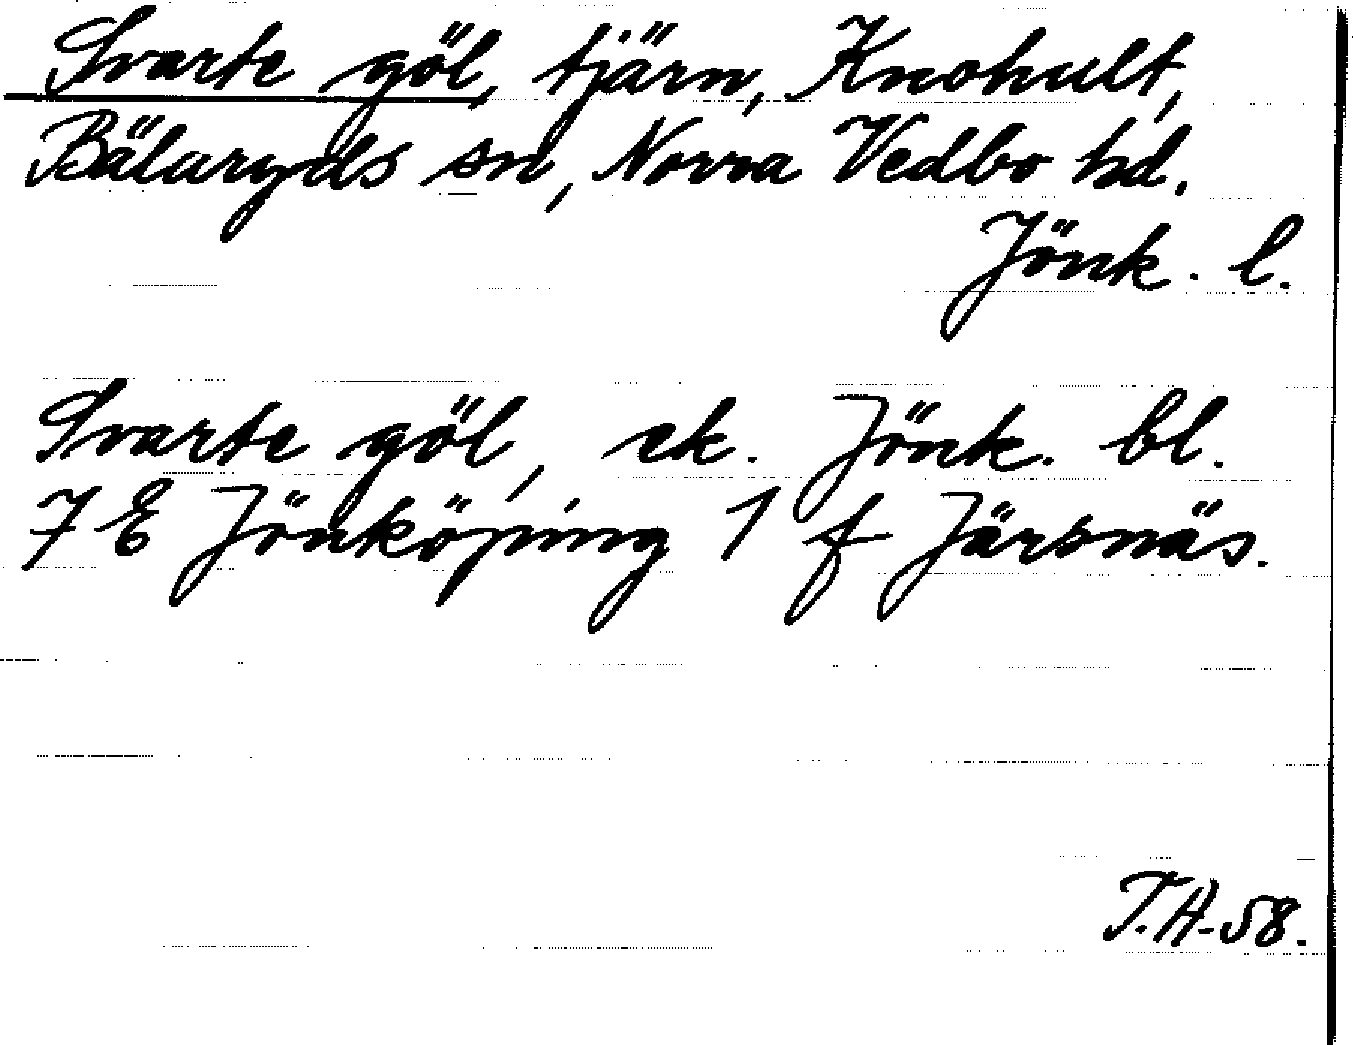 Svarte göl, tjärn, Knohult,
Bälaryds sn, Norra Vedbo hd.
Jönk. l.
Svarte göl, ek. Jönk. bl.
7 E Jönköping 1 f Järsnäs.
T.A-58.